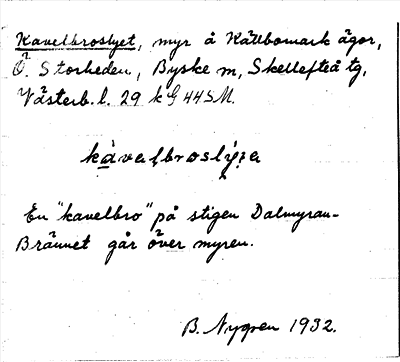 Kavelbroslyet, myr å Källbomark ägor,
Ö. Storheden, Byske m, Skellefteå tg,
Västerb. l. 29 k G 44 SM.
En "kavelbro" på stigen Dalmyran-
Brännet går över myren.
B. Nygren 1932.